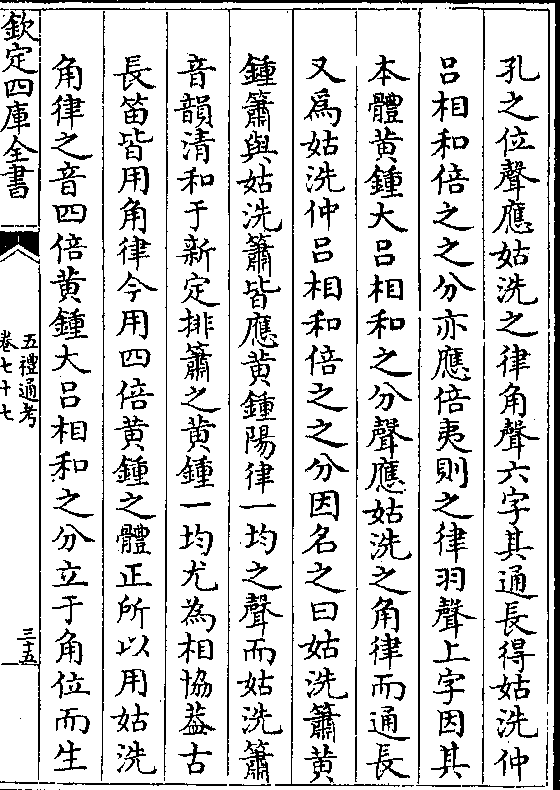 孔之位聲應姑洗之律角聲六字其通長得姑洗仲
呂相和倍之之分亦應倍夷則之律羽聲上字因其
本體黃鍾大呂相和之分聲應姑洗之角律而通長
又爲姑洗仲呂相和倍之之分因名之曰姑洗簫黃
鍾簫與姑洗簫皆應黃鍾陽律一均之聲而姑洗簫
音韻清和于新定排簫之黃鍾一均尤為相協葢古
長笛皆用角律今用四倍黃鍾之體正所以用姑洗
角律之音四倍黃鍾大呂相和之分立于角位而生
欽定四庫全書
五禮通考
卷七十七
三十五